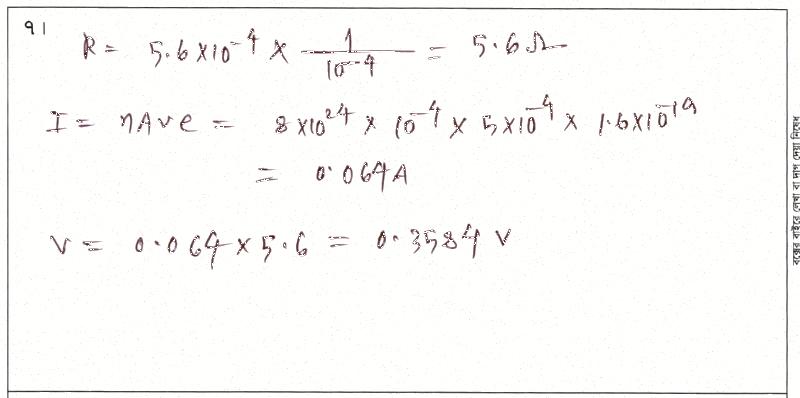 ৭।
R = 5.6×10⁻⁴ × 1/10⁻⁴ = 5.6Ω
I = nAve = 8×10²⁴ × 10⁻⁴ × 5×10⁻⁴ × 1.6×10⁻¹⁹
= 0.064A
V = 0.064×5.6 = 0.3584 V
বক্সের বাইরে লেখা বা দাগ দেয়া নিষেধ